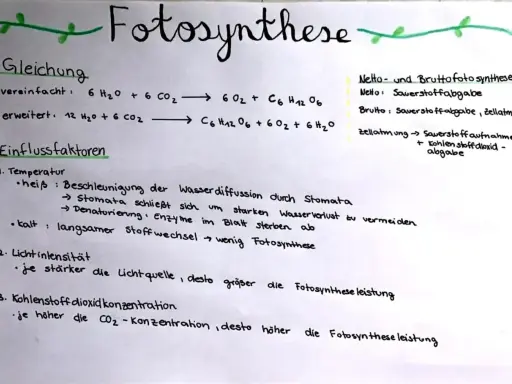 Fotosynthese
Gleichung
vereinfacht: 6 H₂O + 6 CO₂ → 6 O₂ + C₆H₁₂O₆
erweitert: 12 H₂O + 6 CO₂ → C₆H₁₂O₆ + 6 O₂ + 6 H₂O
Netto- und Bruttofotosynthese
Netto: Sauerstoffabgabe
Brutto: Sauerstoffabgabe, Zellatm
Zellatmung → Sauerstoffaufnahme
+ Kohlenstoffdioxid-
abgabe
Einflussfaktoren
1. Temperatur
• heiß: Beschleunigung der Wasserdiffussion durch Stomata
→ Stomata schließt sich um starken Wasserverlust zu vermeiden
→ Denaturierung: Enzyme im Blatt sterben ab
• kalt: langsamer Stoffwechsel → wenig Fotosynthese
2. Lichtintensität
• je stärker die Lichtquelle, desto größer die Fotosyntheseleistung
3. Kohlenstoffdioxidkonzentration
• je höher die CO₂-Konzentration, desto höher die Fotosyntheseleistung